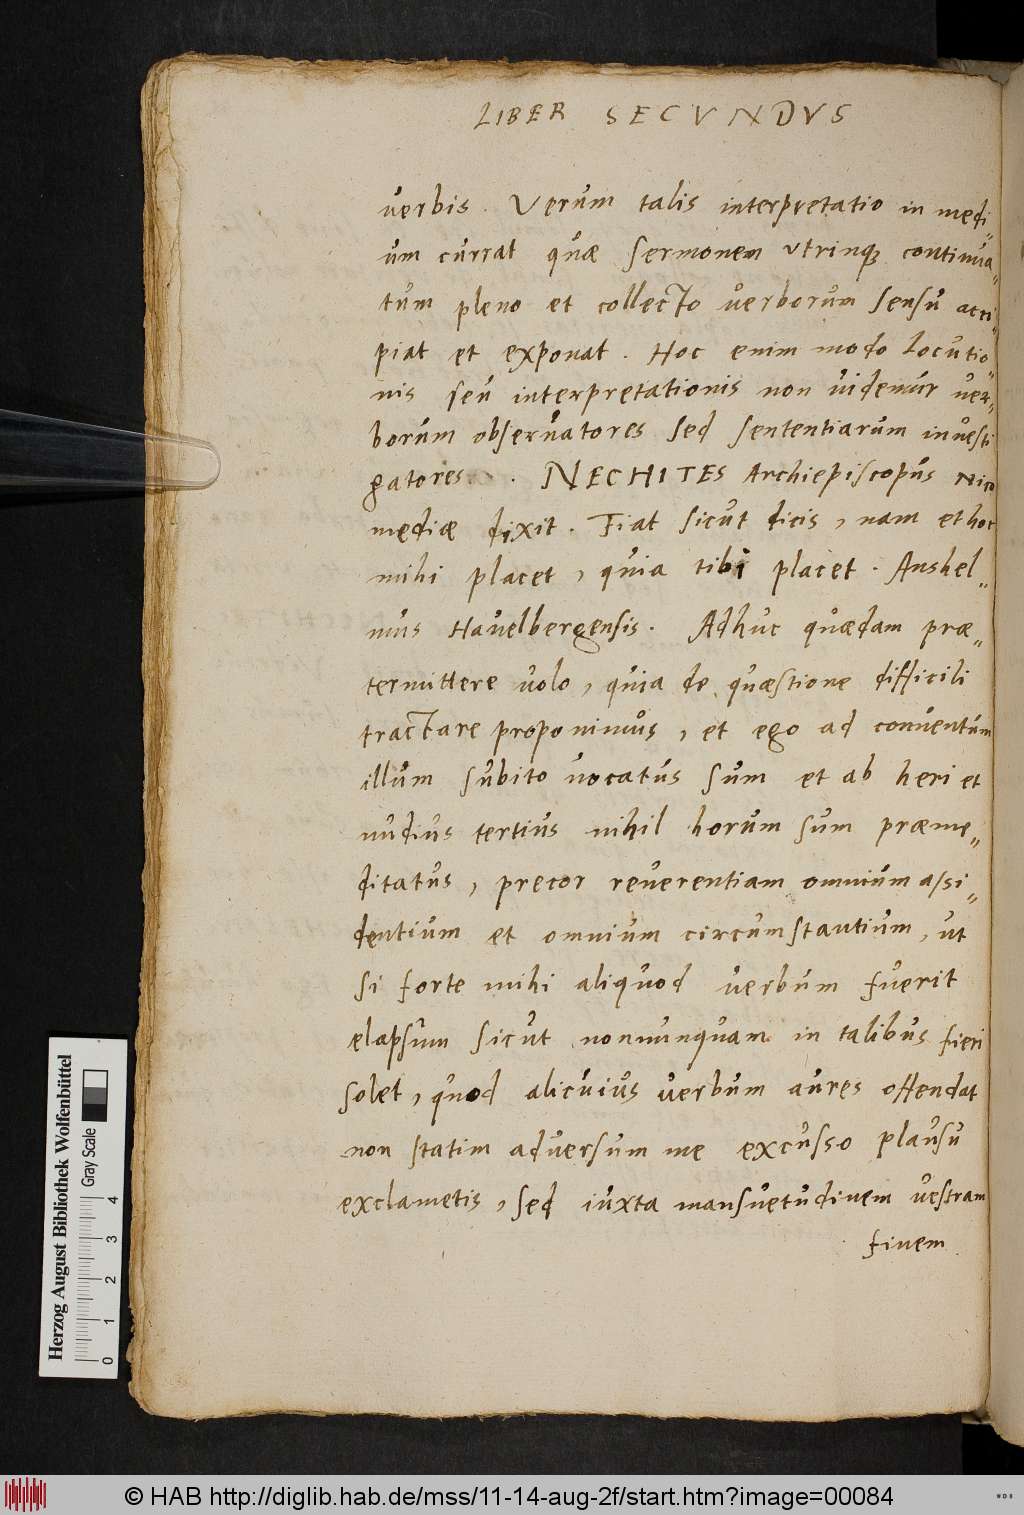 LIBER SECVNDVS
verbis. Verum talis interpretatio in medi„
um currat quæ sermonem vtrinq; continua„
tum pleno et collecto verborum sensu acci„
piat et exponat. Hoc enim modo locutio„
nis seu interpretationis non videmur ver„
borum observatores sed sententiarum investi
gatores. NECHITES Archiepiscopus Nico
mediæ dixit. Fiat sicut dicis, nam et hoc
mihi placet, quia tibi placet. Anshel„
mus Havelbergensis. Adhuc quædam præ„
termittere volo, quia de quæstione difficili
tractare proponimus, et ego ad conventum
illum subito vocatus sum et ab heri et
nudius tertius nihil horum sum præme„
ditatus, precor reverentiam omnium assi„
dentium et omnium circumstantium, ut
si forte mihi aliquod verbum fuerit
elapsum sicut nonnunquam in talibus fieri
solet, quod alicuius verbum aures offendat
non statim adversum me excusso plausu
exclametis, sed iuxta mansuetudinem vestram
finem
Herzog August Bibliothek Wolfenbüttel
Gray Scale
0 1 2 3 4
© HAB http://diglib.hab.de/mss/11-14-aug-2f/start.htm?image=00084